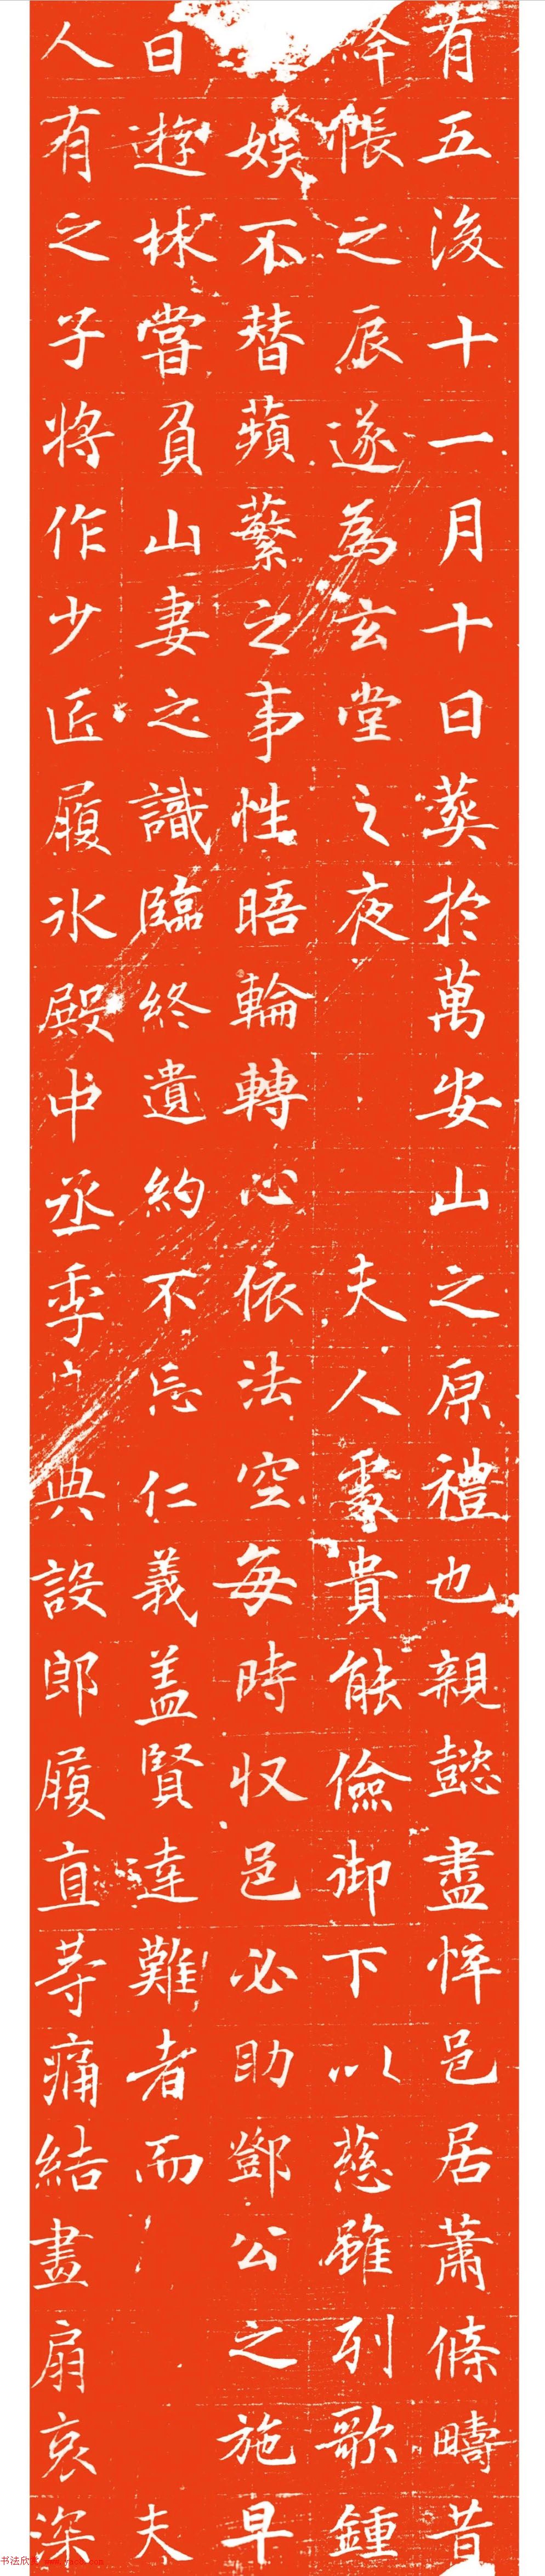 有五後十一月十日葬於萬安山之原禮也親懿盡悴邑居蕭條疇昔
帳之辰遂為玄堂之夜夫人處貴能儉御下以慈雖列歌鍾
娛不替蘋蘩之事性晤輪轉心依法空每時収邑必助鄧公之施早
日遊林嘗負山妻之識臨終遺約不忘仁義盖賢達難者而夫
人有之子將作少匠履冰殿中丞季典設郎履直等痛結畫扇哀深
书法欣